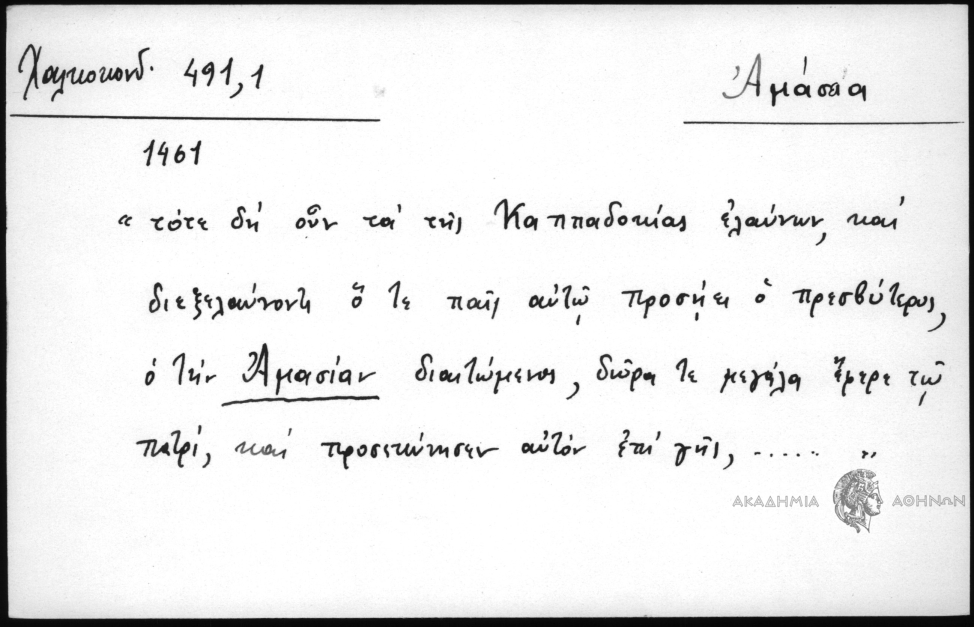 Χαλκοκονδ. 491,1
Ἀμάσεια
1461
“ τότε δή οὖν τά τῆς Καππαδοκίας ἐλαύνων, καί
διεξελαύνοντι ὅ τε παῖς αὐτῷ προσῄει ὁ πρεσβύτερος,
ὁ τήν Ἀμασίαν διαιτώμενος, δῶρα τε μεγάλα ἔφερε τῷ
πατρί, καί προσεκύνησεν αὐτόν ἐπί γῆς, ...... ”
ΑΚΑΔΗΜΙΑ ΑΘΗΝΩΝ